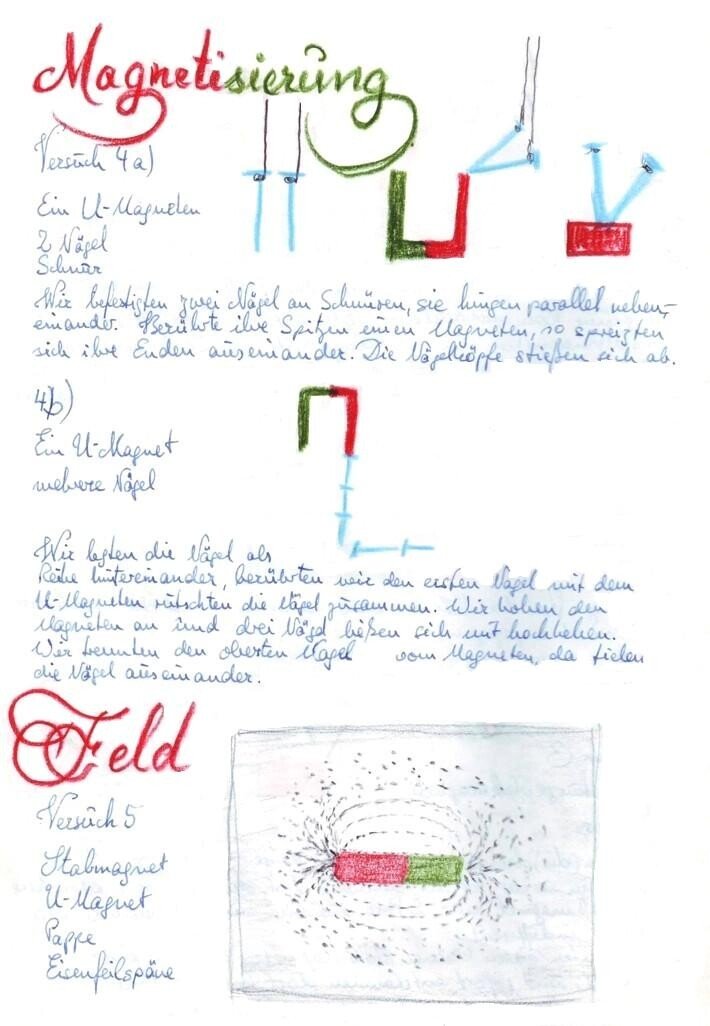 Magnetisierung
Versuch 4a)
Ein U-Magneten
2 Nägel
Schnur
Wir befestigten zwei Nägel an Schnüren, sie hingen parallel neben-
einander. Berührte ihre Spitzen einen Magneten, so spreizten
sich ihre Enden auseinander. Die Nägelköpfe stießen sich ab.
4b)
Ein U-Magnet
mehrere Nägel
Wir legten die Nägel als
Reihe hintereinander, berührten wir den ersten Nagel mit dem
U-Magneten rutschten die Nägel zusammen. Wir hoben den
Magneten an und drei Nägel ließen sich mit hochheben.
Wir trennten den obersten Nagel vom Magneten, da fielen
die Nägel auseinander.
Feld
Versuch 5
Stabmagnet
U-Magnet
Pappe
Eisenfeilspäne